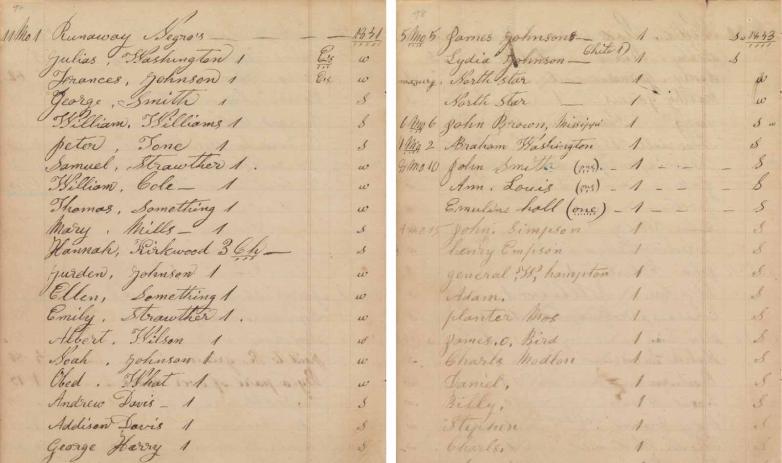 11 Mo 1 Runaway Negro's — 1831
Julias, Washington 1 w
Frances, Johnson 1 w
George, Smith 1 S
William, Williams 1 S
peter, Tone 1 S
Samuel, Strawther 1. w
William, Cole — 1 w
Thomas, Something 1 w
Mary, Mills — 1 S
Hannah, Kirkwood 3 Ch — S
Jurden, Johnson 1 w
Ellen, Something 1 w
Emily, Strawther 1. w
Albert, Wilson 1 w
Noah, Johnson 1 w
Obed, What 1 w
Andrew Davis — 1 S
Addison Davis 1 S
George Harry 1 S
98
5 Mo 5 James Johnson — 1 S 1833
Lydia Johnson — S
North Star — 1 w
North Star — 1 w
6 Mo 6 John Brown, 1 S
2 Abraham Washington 1 S
Mo 10 John Smith (one) 1 S
Ann. Louis (one) 1 S
Emuline hall (one) 1 S
John. Simpson 1 S
henry Empson 1 S
general, W, hampton 1 S
Adam. 1 S
planter Mos 1 S
James, o, Bird 1 S
Charls Modlon 1 S
Daniel, 1 S
Billy, 1 S
Stephen 1 S
Charls. 1 S